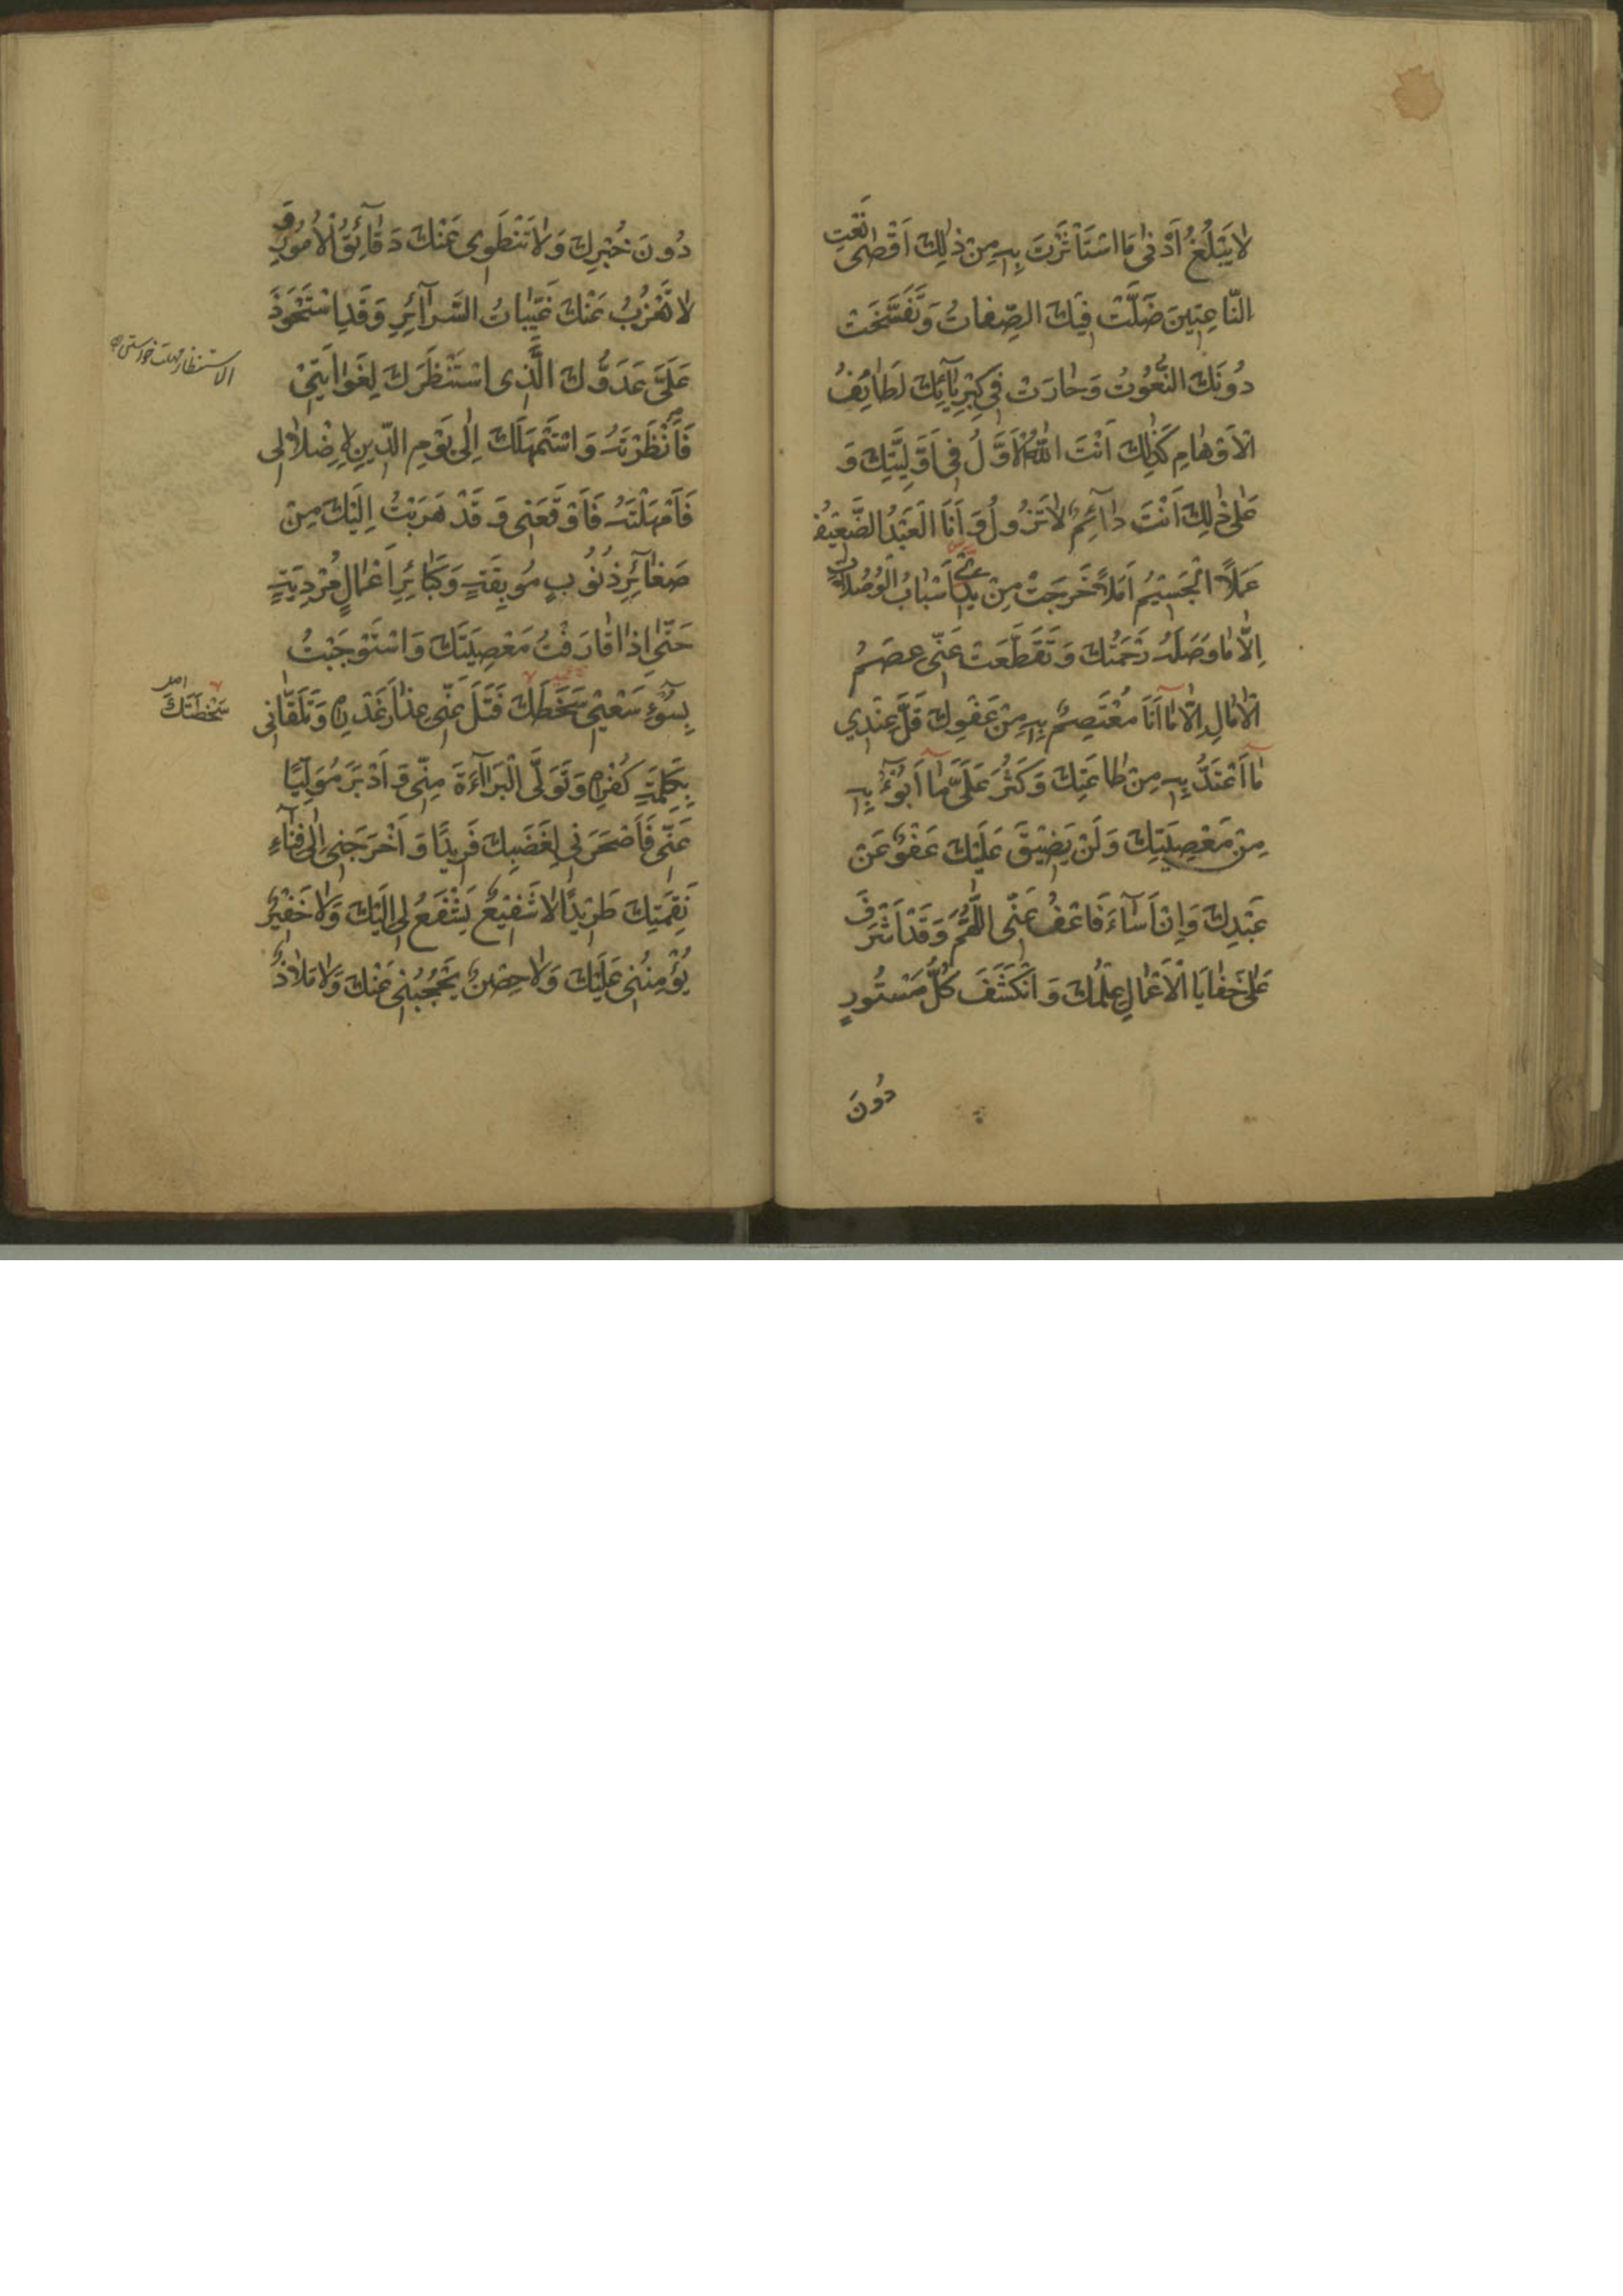 لَا يَبْلُغُ اَدْنٰى مَا اسْتَأْثَرْتَ بِهِ مِنْ ذٰلِكَ اَقْصٰى نَعْتِ
النَّاعِتِينَ ضَلَّتْ فِيكَ الصِّفَاتُ وَتَفَسَّخَتْ
دُونَكَ النُّعُوتُ وَحَارَتْ فِي كِبْرِيَآئِكَ لَطَائِفُ
الْاَوْهَامِ كَذٰلِكَ اَنْتَ اللّٰهُ الْاَوَّلُ فِي اَوَّلِيَّتِكَ وَ
عَلٰى ذٰلِكَ اَنْتَ دَآئِمٌ لَا تَزُولُ وَ اَنَا الْعَبْدُ الضَّعِيفُ
عَمَلًا الْجَسِيمُ اَمَلًا خَرَجَتْ مِنْ يَدِي اَسْبَابُ الْوُصُلَاتِ
اِلَّا مَا وَصَلَهُ رَحْمَتُكَ وَ تَقَطَّعَتْ عَنِّي عِصَمُ
الْاٰمَالِ اِلَّا مَا اَنَا مُعْتَصِمٌ بِهِ مِنْ عَفْوِكَ قَلَّ عِنْدِي
مَا اَعْتَدُّ بِهِ مِنْ طَاعَتِكَ وَ كَثُرَ عَلَيَّ مَا اَبُوءُ بِهِ
مِنْ مَعْصِيَتِكَ وَ لَنْ يَضِيقَ عَلَيْكَ عَفْوٌ عَنْ
عَبْدِكَ وَ اِنْ اَسَآءَ فَاعْفُ عَنِّي اَللّٰهُمَّ وَ قَدْ اَشْرَفَ
عَلٰى خَفَايَا الْاَعْمَالِ عِلْمُكَ وَ انْكَشَفَ كُلُّ مَسْتُورٍ
دُونَ
دُونَ خُبْرِكَ وَ لَا تَنْطَوِي عَنْكَ دَقَآئِقُ الْاُمُورِ وَ
لَا تَعْزُبُ عَنْكَ غَيِّبَاتُ السَّرَآئِرِ وَ قَدِ اسْتَحْوَذَ
عَلَيَّ عَدُوُّكَ الَّذِي اسْتَنْظَرَكَ لِغَوَايَتِي
الاستنظار مهلت خواستن
فَاَنْظَرْتَهُ وَ اسْتَمْهَلَكَ اِلٰى يَوْمِ الدِّينِ لِاِضْلَالِي
فَاَمْهَلْتَهُ فَاَوْقَعَنِي وَ قَدْ هَرَبْتُ اِلَيْكَ مِنْ
صَغَآئِرِ ذُنُوبٍ مُوبِقَةٍ وَ كَبَائِرِ اَعْمَالٍ مُرْدِيَةٍ
حَتّٰى اِذَا قَارَفْتُ مَعْصِيَتَكَ وَ اسْتَوْجَبْتُ
بِسُوءِ سَعْيِي سَخَطَكَ فَتَلَ عَنِّي عِذَارَ غَدْرِهِ وَ تَلَقَّانِي
سَخْطَتَكَ
بِكَلِمَةِ كُفْرِهِ وَ تَوَلَّى الْبَرَآءَةَ مِنِّي وَ اَدْبَرَ مُوَلِّيًا
عَنِّي فَاَصْحَرَنِي لِغَضَبِكَ فَرِيدًا وَ اَخْرَجَنِي اِلٰى فِنَآءِ
نَقِمَتِكَ طَرِيدًا لَا شَفِيعٌ يَشْفَعُ لِي اِلَيْكَ وَ لَا خَفِيرٌ
يُؤْمِنُنِي عَلَيْكَ وَ لَا حِصْنٌ يَحْجُبُنِي عَنْكَ وَ لَا مَلَاذٌ